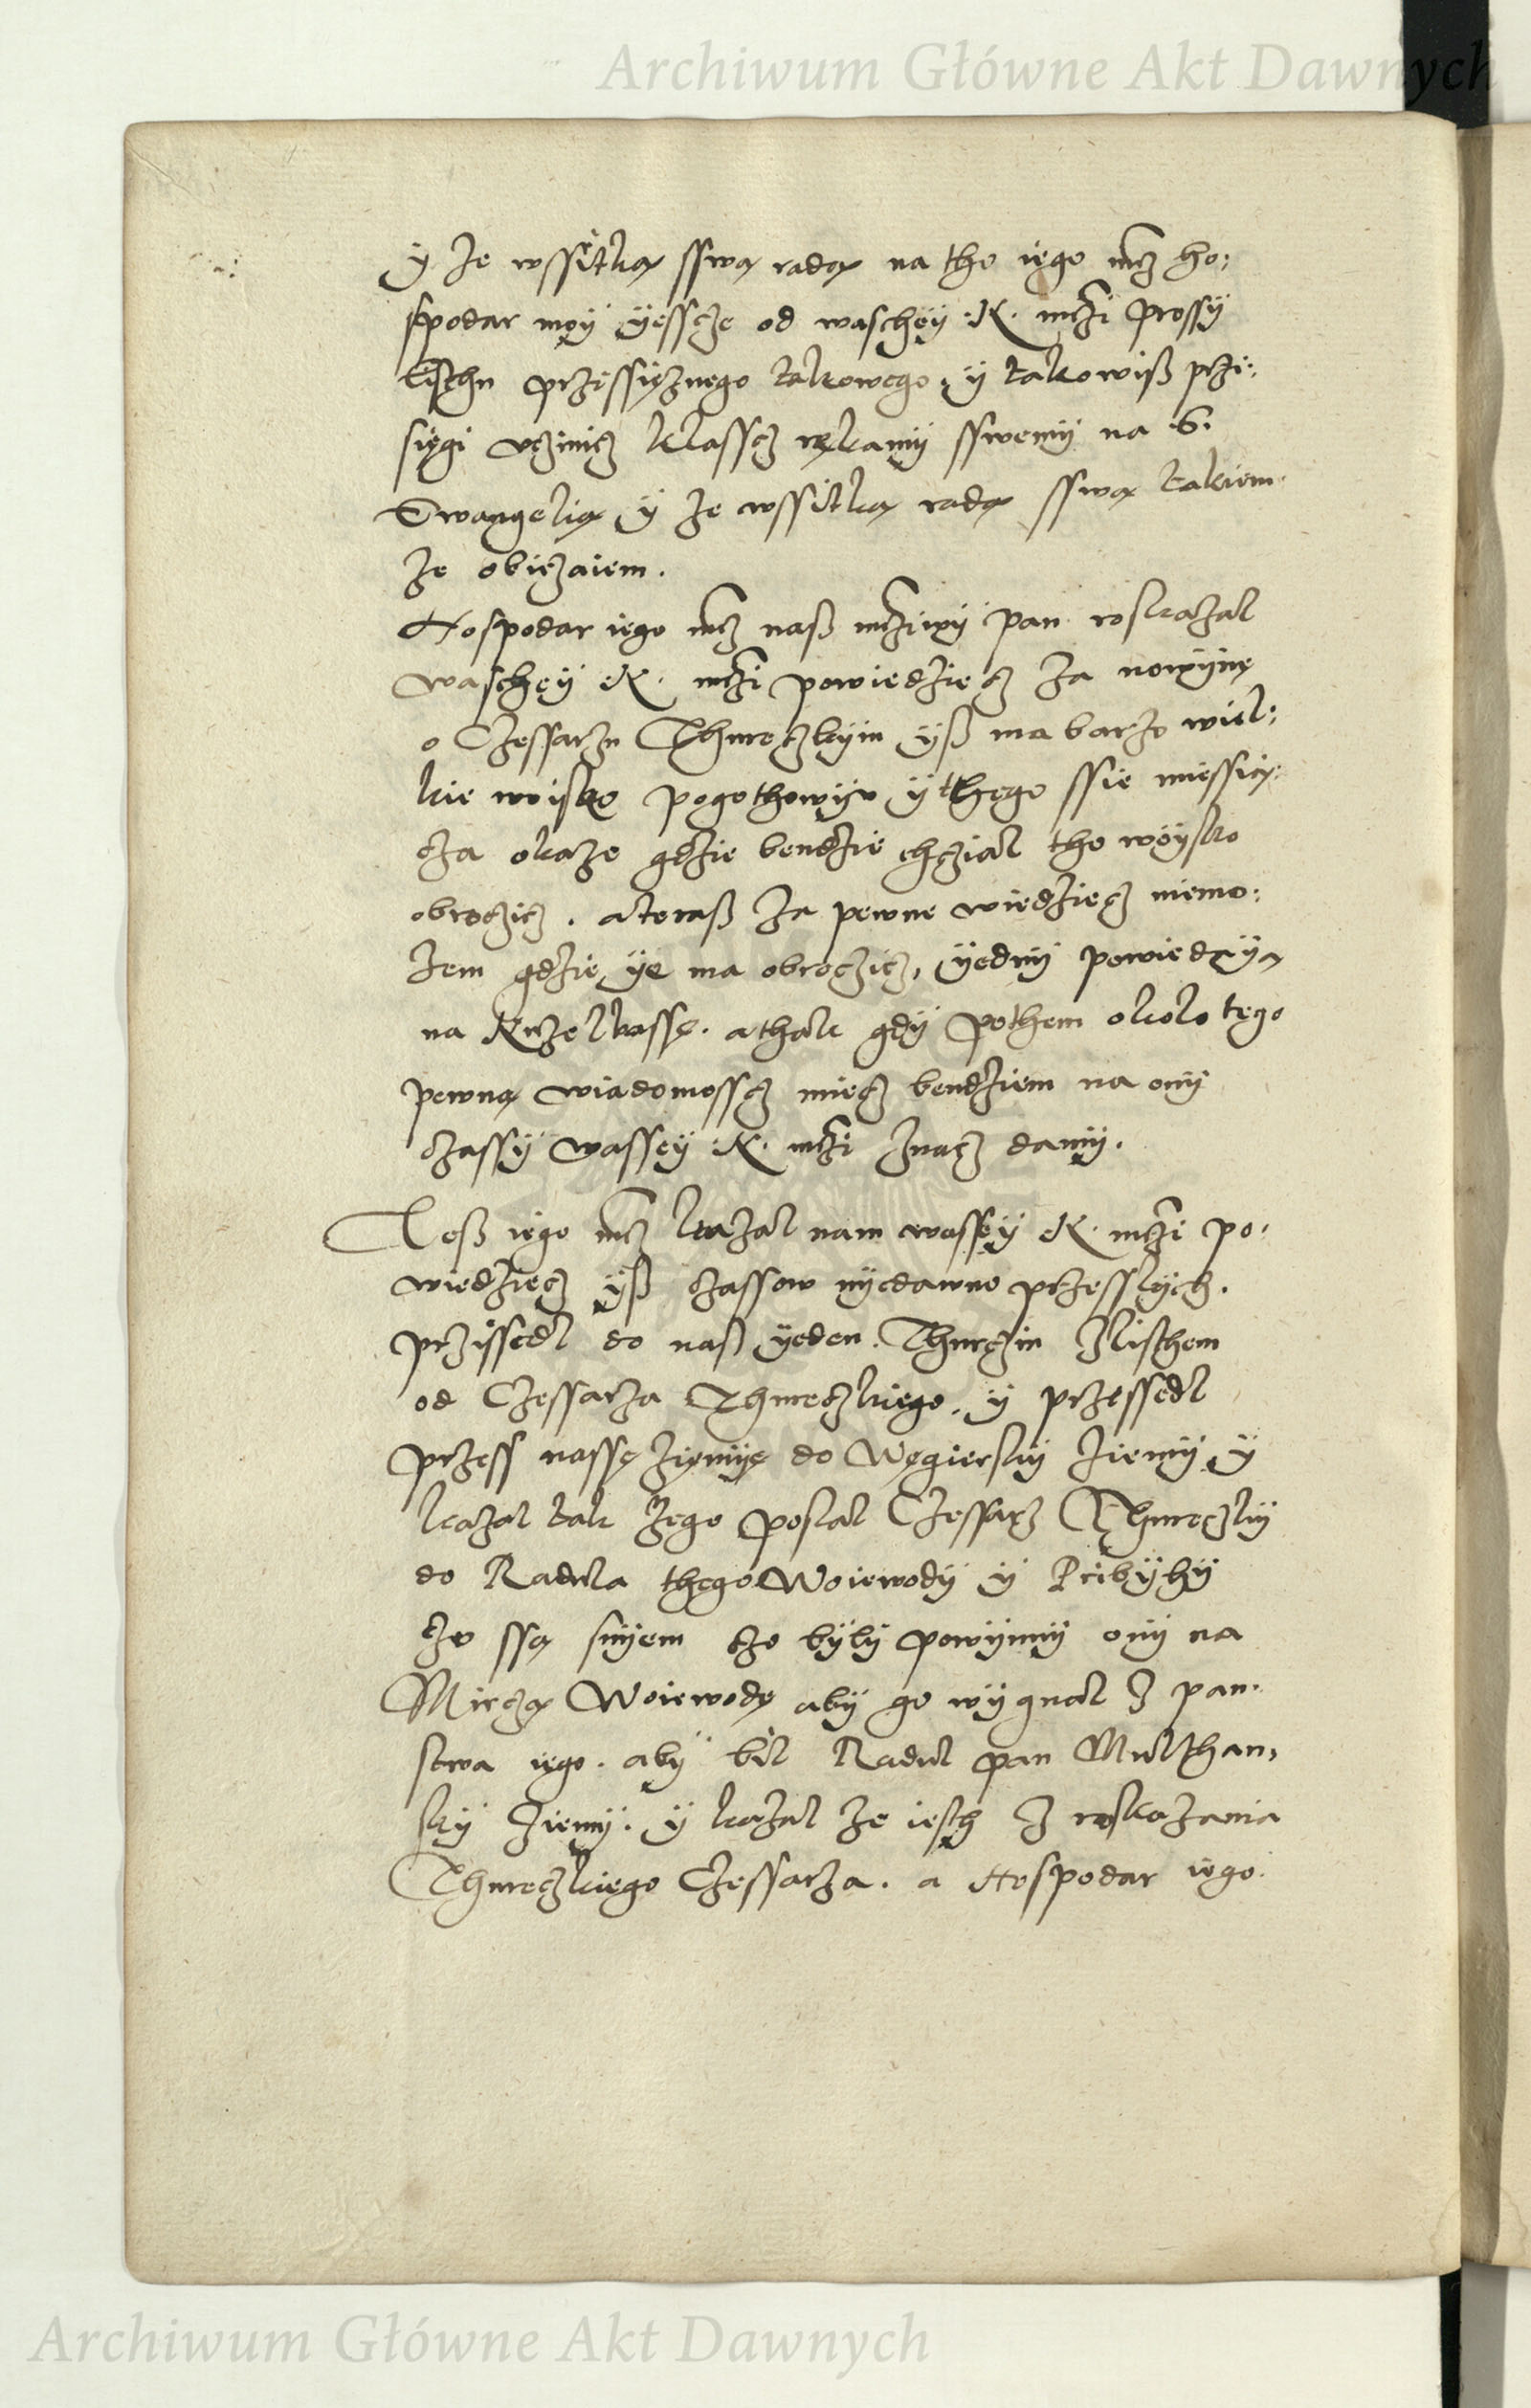 Archiwum Główne Akt Dawnych
ÿ ze wssitką sswą radą na tho iego mcz ho:
spodar moÿ ÿesscze od waschęÿ K. mczi prossÿ
listhu przissięznego takowego, ÿ takowiß przi:
sięgi vczinicz klasscz rękamÿ sswemÿ na S.
Ewangelią ÿ ze wssitką radą sswą takiem
ze obiczaiem.
Hospodar iego mcz naß mcziwÿ pan roskazal
waschęÿ K. mczi powiedziecz za nowÿnę
o Czessarzu Thureczkÿm ÿß ma barzo wiel:
kie woisko pogothowÿu ÿ thego ssie miessią:
cza okaze gdzie bendzie chczial tho woÿsko
obroczicz. a teraß za pewne wiedziecz niemo:
zem gdzie ÿe ma obroczicz, ÿednÿ powiedzÿą
na Kuzelbassę. a thak gdÿ pothem okolo tego
pewną wiadomosscz miecz bendziem na onÿ
czassÿ wassęÿ K. mczi znacz damÿ.
Teß iego mcz kazal nam wassęÿ K. mczi po:
wiedziecz ÿß czassow nÿedawno przesslÿch.
przissedl do naß ÿeden Thurczin zlisthem
od Czessarza Thureczkiego, ÿ przessedl
przess nassę ziemÿę do Węgierskÿ ziemÿ ÿ
kazal tak zego poslal Czessarz Thureczkÿ
do Radula thego Woiewodÿ ÿ Pribÿhÿ
czo są snÿem czo bÿlÿ powÿnnÿ onÿ na
Mirczą Woiewodę abÿ go wÿgnal z pan:
stwa iego. abÿ bil Radul pan Multhan:
skÿ ziemÿ. ÿ kazal ze iesth z roskazania
Thureczkiego Czessarza. a Hospodar iego
Archiwum Główne Akt Dawnych